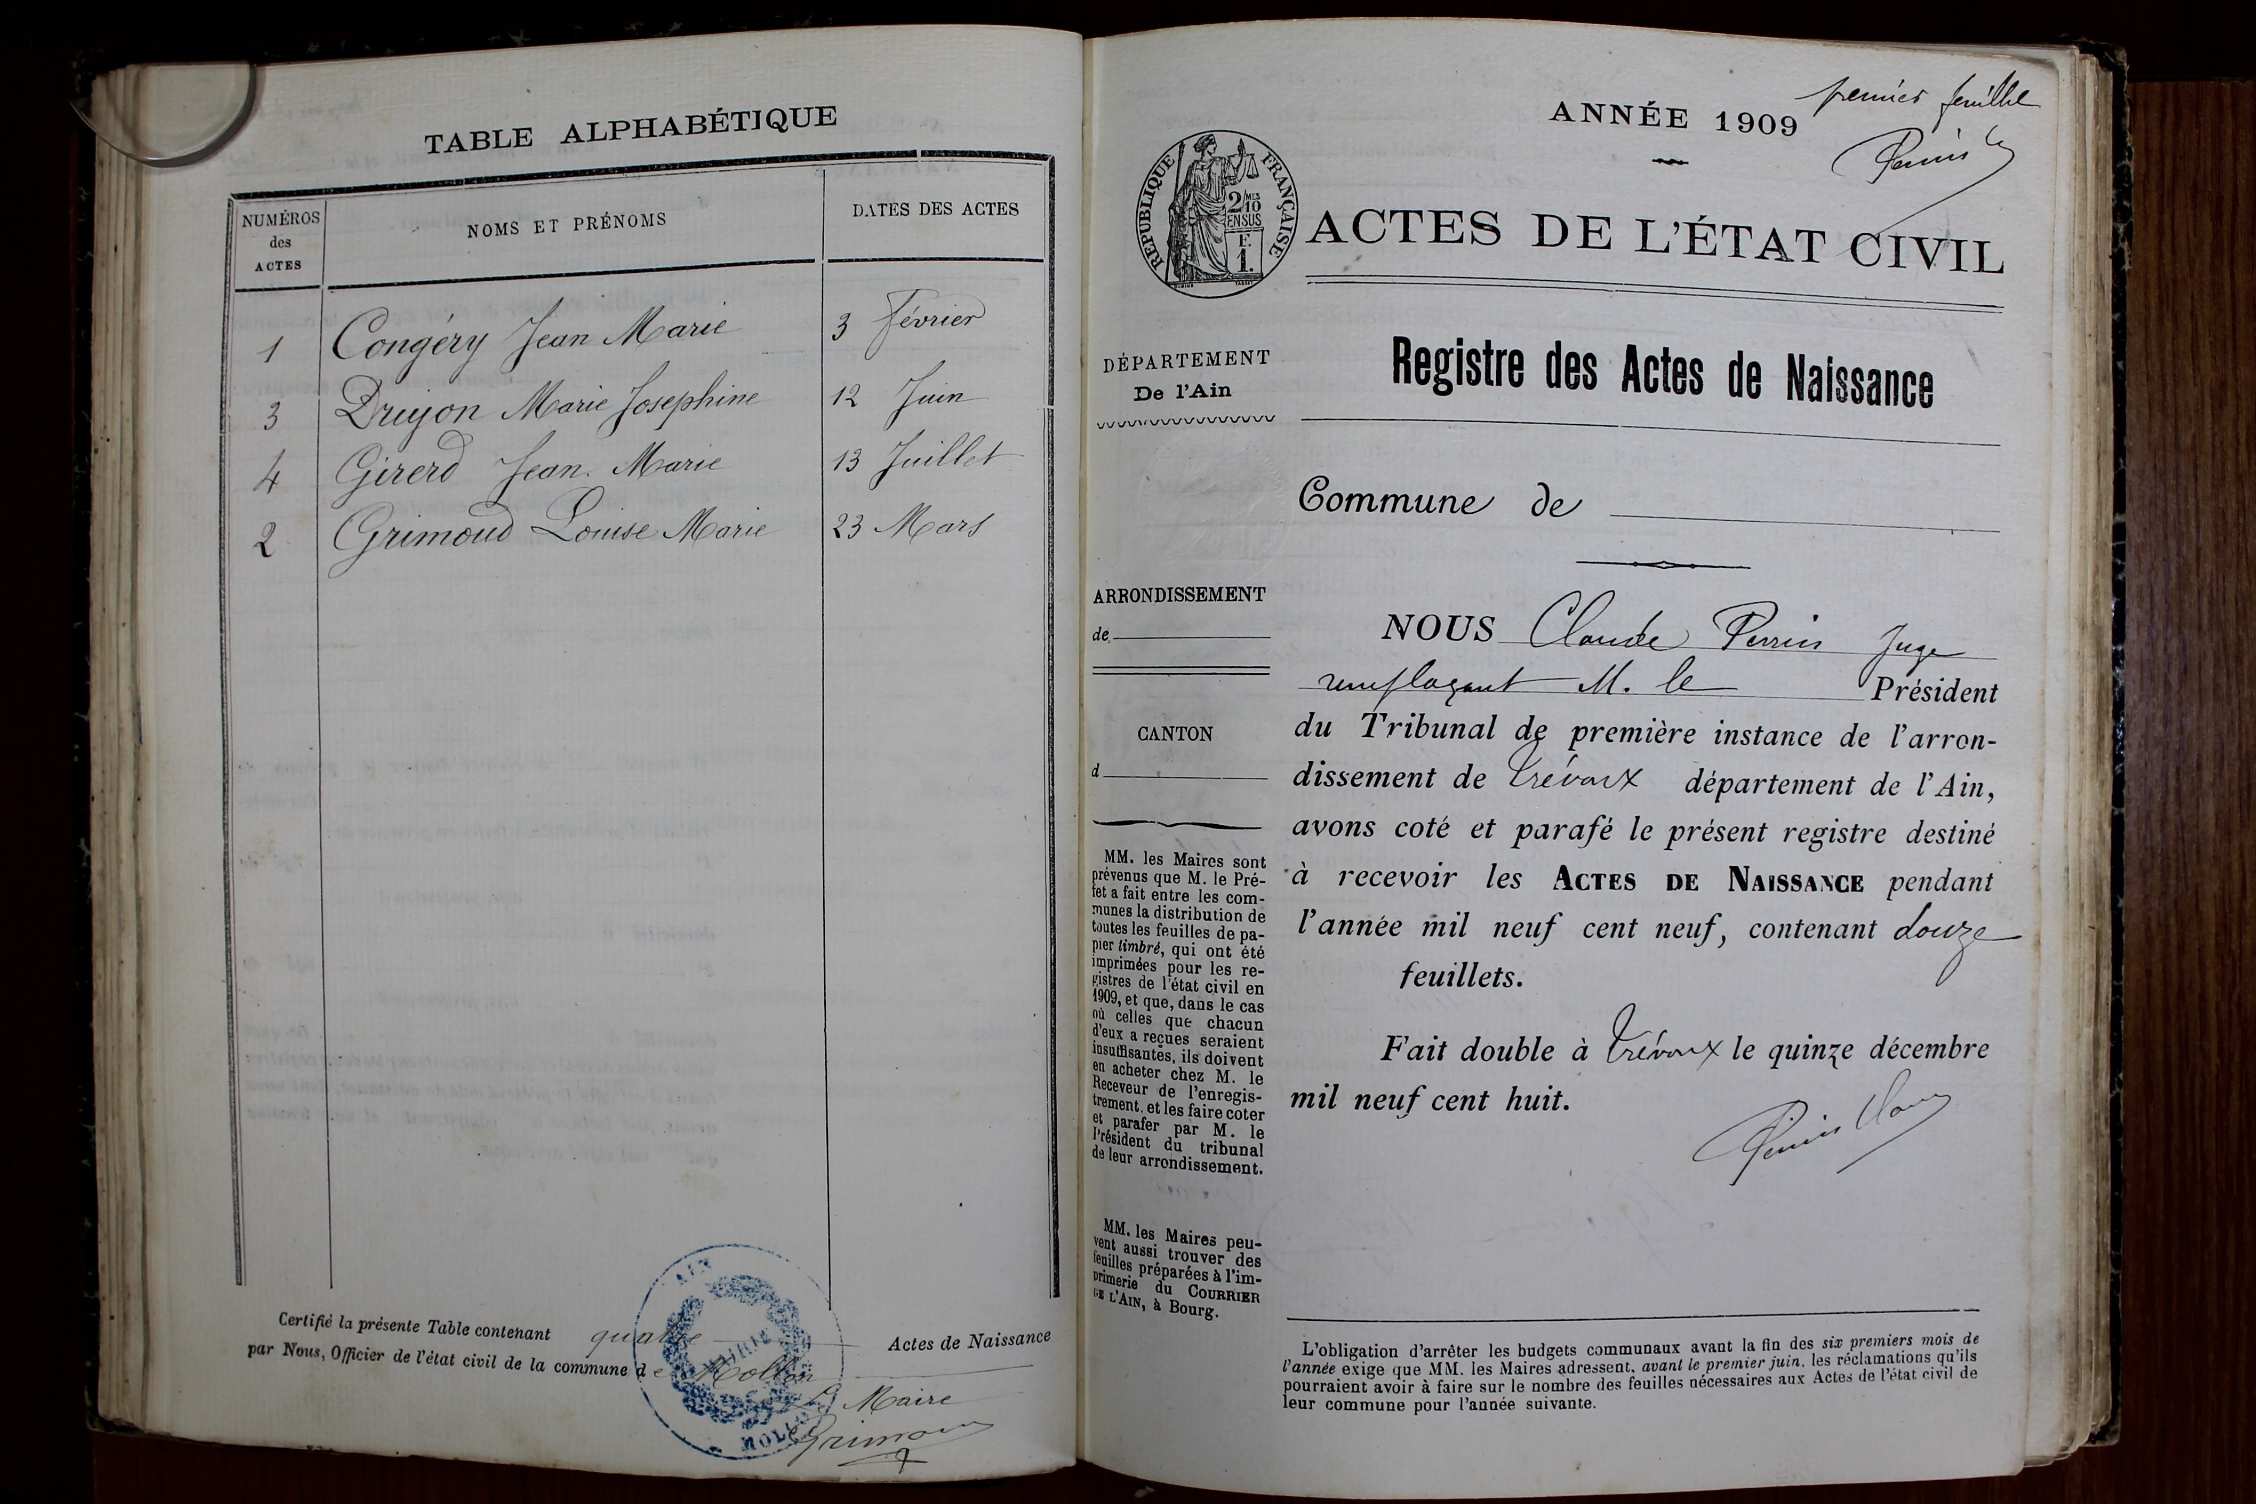 TABLE ALPHABÉTIQUE
NUMÉROS
des
ACTES
NOMS ET PRÉNOMS
DATES DES ACTES
1 Congéry Jean Marie 3 Février
3 Drujon Marie Josephine 12 Juin
4 Girerd Jean Marie 13 Juillet
2 Grimoud Louise Marie 23 Mars
Certifié la présente Table contenant quatre Actes de Naissance
par Nous, Officier de l'état civil de la commune de Mollon
Le Maire
Grimoud
AIN
MAIRIE
MOLLON
premier feuillet
ANNÉE 1909
RÉPUBLIQUE FRANÇAISE
2/10
EN SUS
F.
1.
ACTES DE L'ÉTAT CIVIL
Registre des Actes de Naissance
DÉPARTEMENT
De l'Ain
Commune de
ARRONDISSEMENT
de
CANTON
d
MM. les Maires sont
prévenus que M. le Pré-
fet a fait entre les com-
munes la distribution de
toutes les feuilles de pa-
pier timbré, qui ont été
imprimées pour les re-
gistres de l'état civil en
1909, et que, dans le cas
où celles que chacun
d'eux a reçues seraient
insuffisantes, ils doivent
en acheter chez M. le
Receveur de l'enregis-
trement, et les faire coter
et parafer par M. le
Président du tribunal
de leur arrondissement.
MM. les Maires peu-
vent aussi trouver des
feuilles préparées à l'im-
primerie du COURRIER
DE L'AIN, à Bourg.
NOUS Claude Perrin Juge
remplaçant M. le Président
du Tribunal de première instance de l'arron-
dissement de Trévoux département de l'Ain,
avons coté et parafé le présent registre destiné
à recevoir les ACTES DE NAISSANCE pendant
l'année mil neuf cent neuf, contenant douze
feuillets.
Fait double à Trévoux le quinze décembre
mil neuf cent huit.
L'obligation d'arrêter les budgets communaux avant la fin des six premiers mois de
l'année exige que MM. les Maires adressent, avant le premier juin, les réclamations qu'ils
pourraient avoir à faire sur le nombre des feuilles nécessaires aux Actes de l'état civil de
leur commune pour l'année suivante.